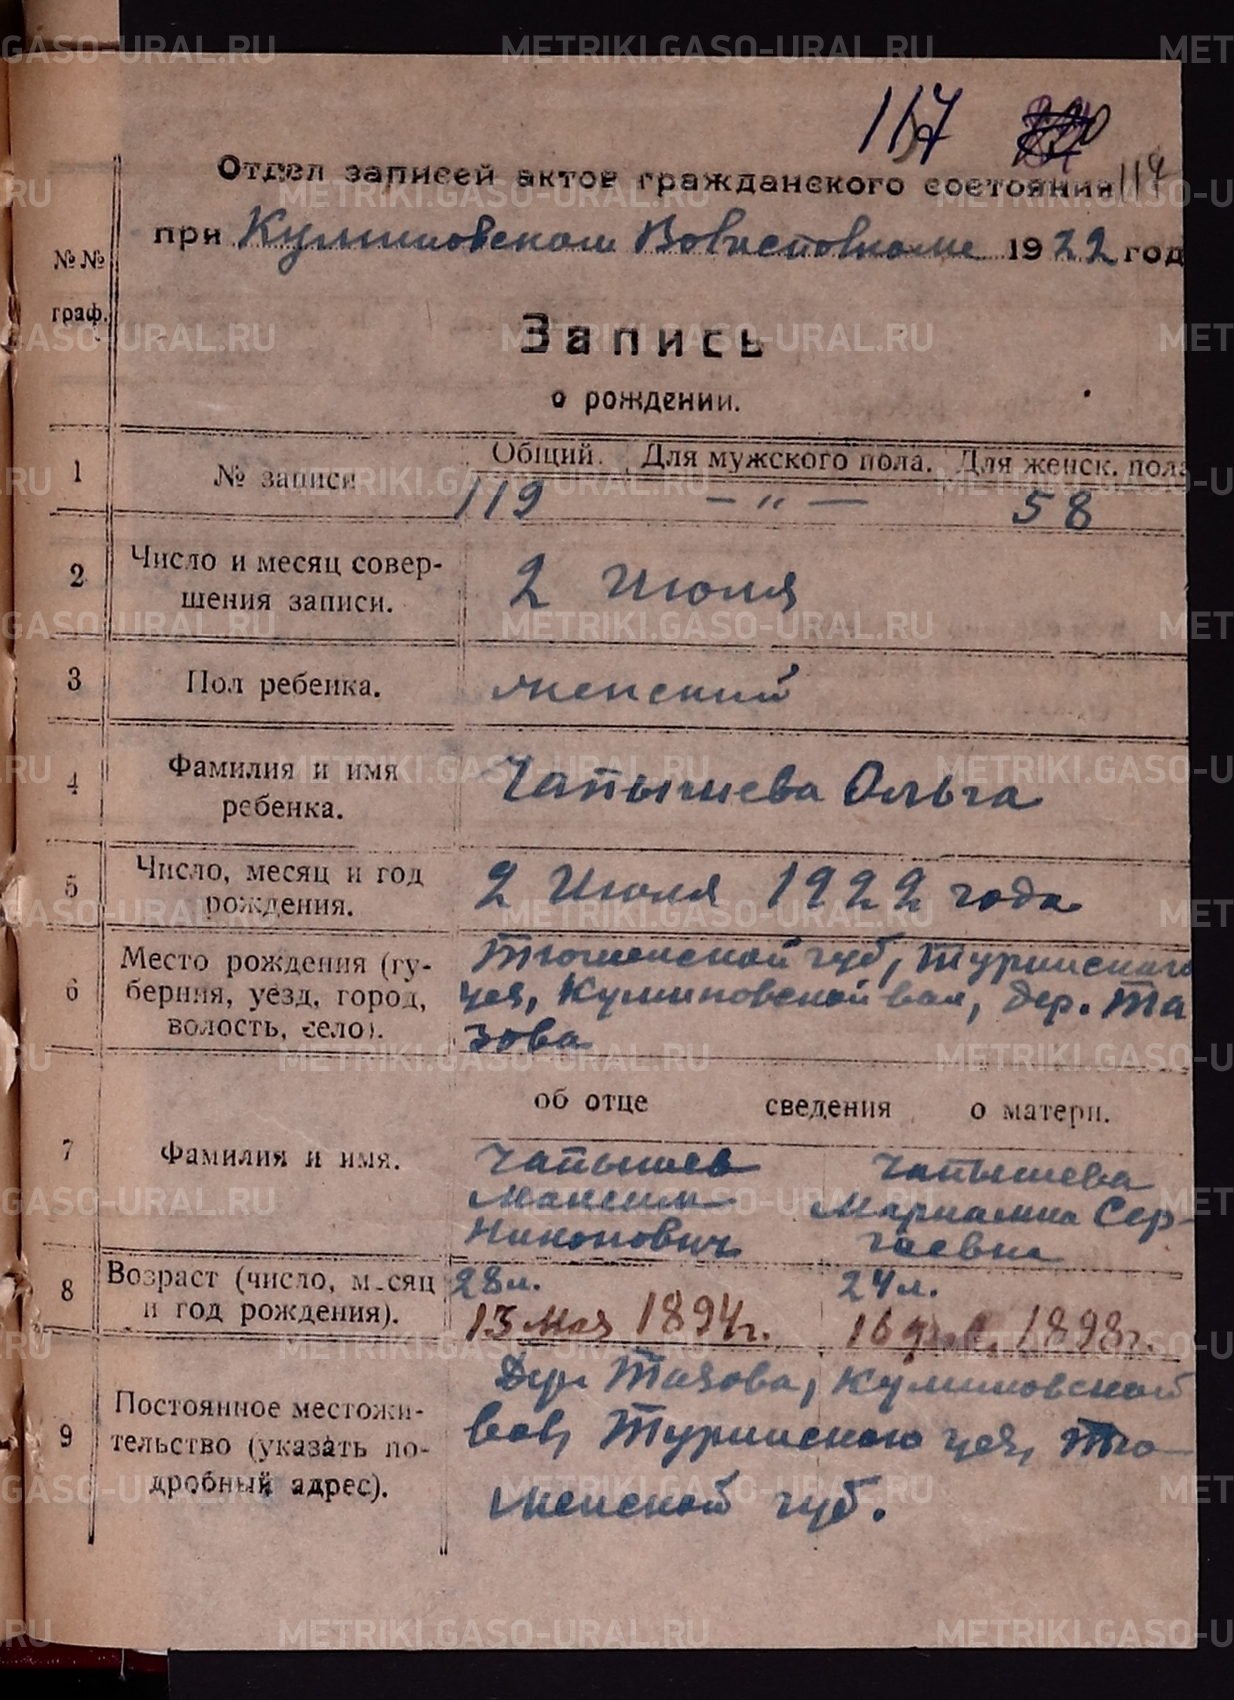 117
114
Отдел записей актов гражданского состояния
при Куминовском Волисполкоме 1922 год
№№ граф.
Запись
о рождении.
Общий. Для мужского пола. Для женск. пола
1 № записи 119 — „ — 58
2 Число и месяц совер-
шения записи. 2 Июля
3 Пол ребенка. женский
4 Фамилия и имя
ребенка. Чапышева Ольга
5 Число, месяц и год
рождения. 2 Июля 1922 года
6 Место рождения (гу-
берния, уезд, город,
волость, село).
Тюменской губ, Туринского
уез, Куминовской вол, дер. Та
зова
об отце сведения о матери.
7 Фамилия и имя.
Чапышев
Максим
Никонович
Чапышева
Мариамна Сер-
гаевна
8 Возраст (число, месяц
и год рождения).
28 л.
13 Мая 1894 г.
24 л.
16 1898 г.
9 Постоянное местожи-
тельство (указать по-
дробный адрес).
Дер. Тазова, Куминовской
вол, Туринского уез, Тю-
менской губ.
METRIKI.GASO-URAL.RU